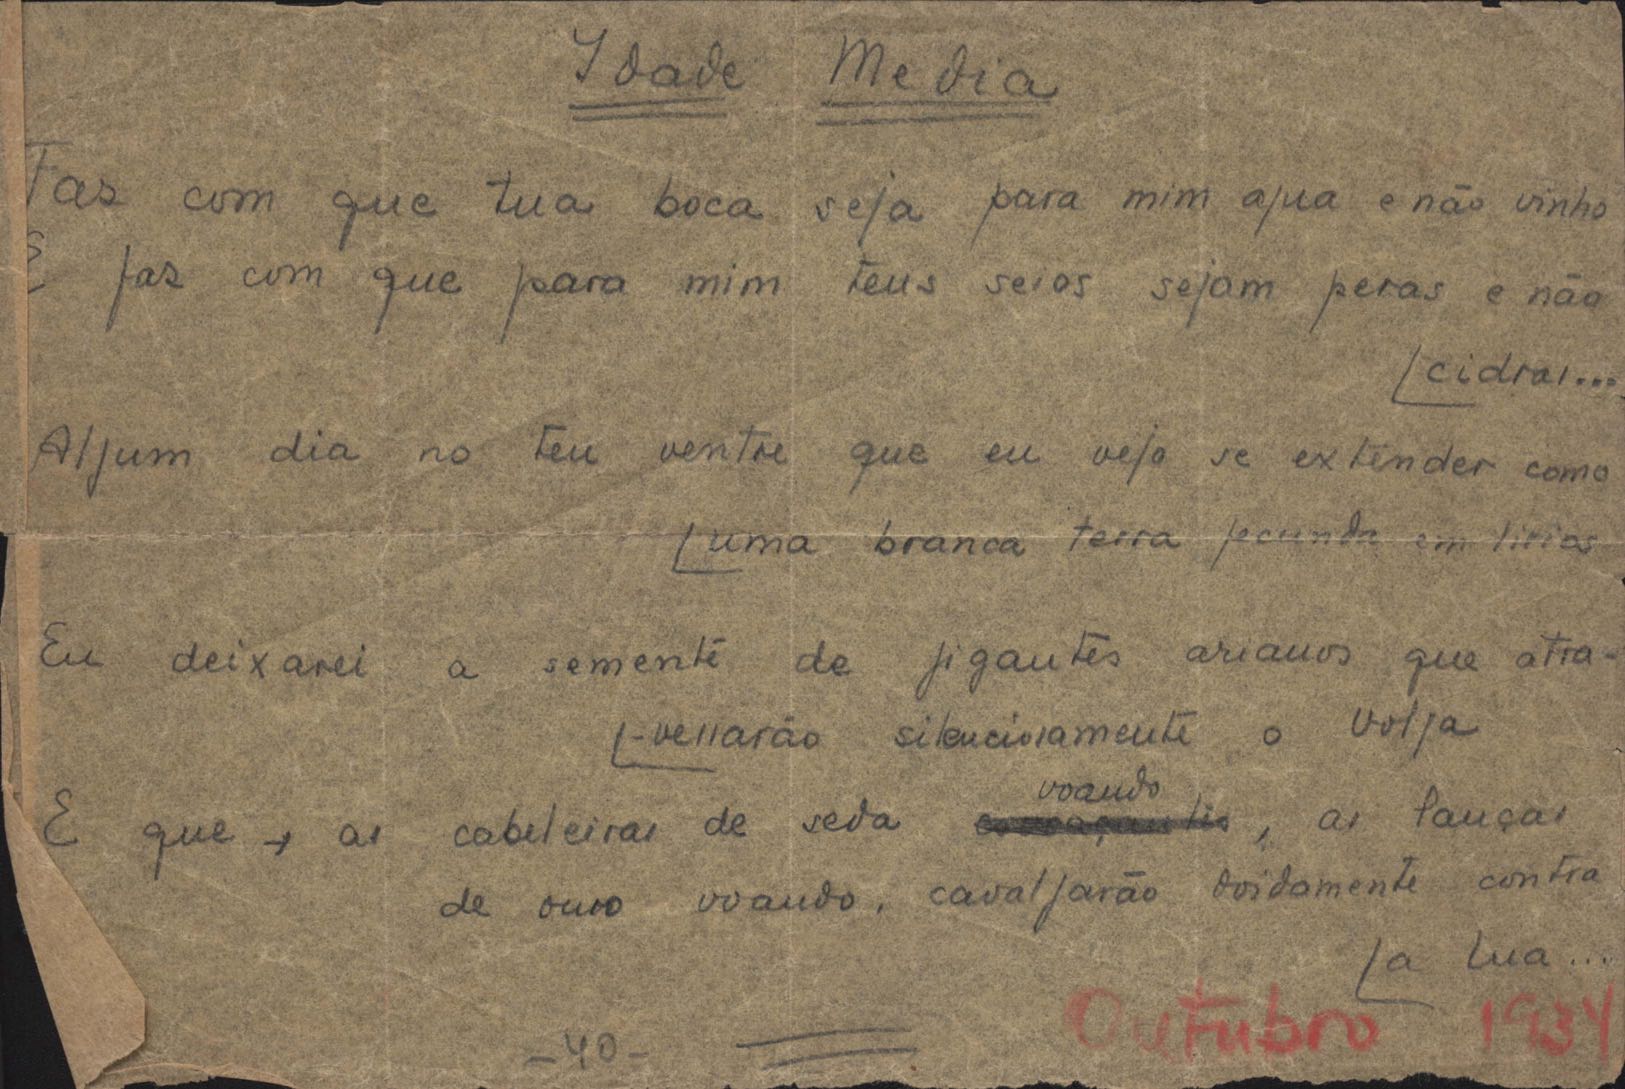 Idade Media
Faz com que tua boca seja para mim agua e não vinho
E faz com que para mim teus seios sejam peras e não
[cidras...
Algum dia no teu ventre que eu vejo se extender como
[uma branca terra fecunda em lirios
Eu deixarei a semente de gigantes arianos que atra-
[-vessarão silenciosamente o Volga
voando
E que, as cabeleiras de seda , as lanças
de ouro voando, cavalgarão doidamente contra
[a lua...
Outubro 1934
-40-